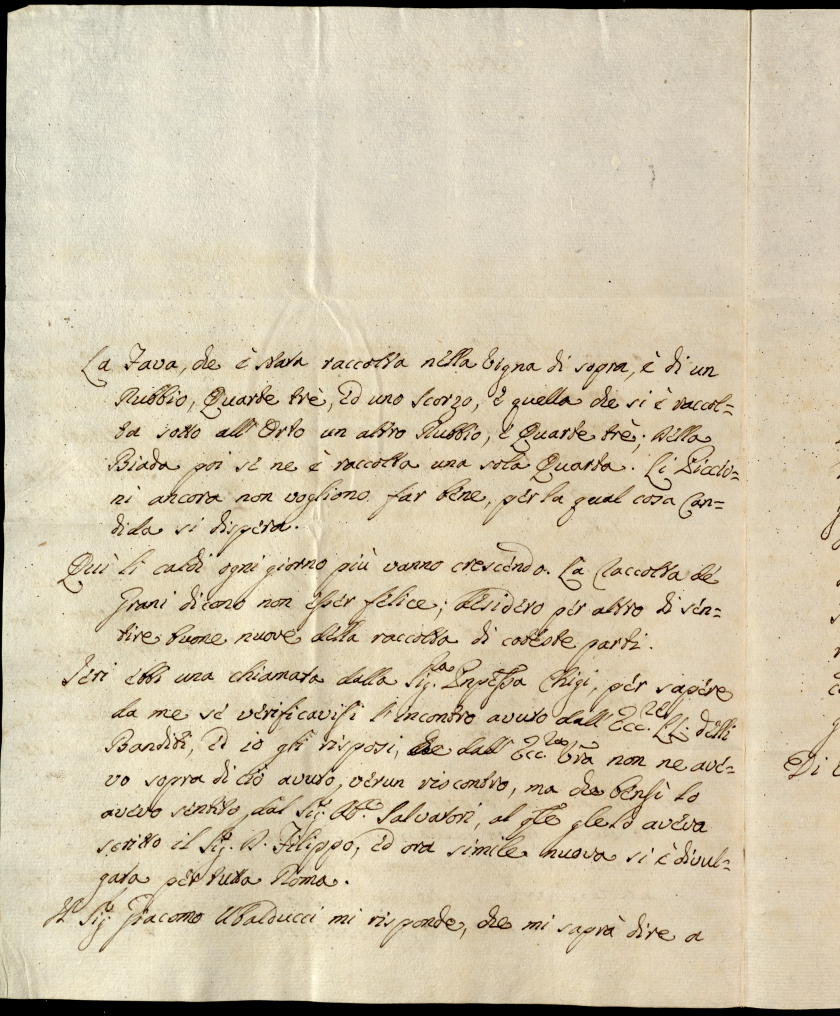 La Fava, che è stata raccolta nella Vigna di sopra, è di un
Rubbio, Quarte trè, ed uno Scorzo, e quella che si è raccol=
ta sotto all'Orto un altro Rubbio, e Quarte trè; della
Biada poi se ne è raccolta una sola Quarta. Li Piccio=
ni ancora non vogliono far bene, per la qual cosa Can=
dida si dispera.
Quì li caldi ogni giorno più vanno crescendo. La raccolta de
Grani dicono non esser felice; desidero per altro di sen=
tire buone nuove della raccolta di coteste parti.
Ieri ebbi una chiamata dalla Sig.ra Pnpessa Chigi, per sapere
da me se verificavasi l'incontro avuto dall'Ecc.ze LL: delli
Banditi, ed io gli risposi, che dall'Ecc.za Vra non ne ave=
vo sopra di ciò avuto, verun riscontro, ma che bensì lo
avevo sentito dal Sig. Ab.e Salvatori, al qle gle lo aveva
scritto il Sig. D. Filippo, ed ora simile nuova si è divul=
gata per tutta Roma.
Il Sig.r Giacomo Ubalducci mi risponde, che mi saprà dire a
Di